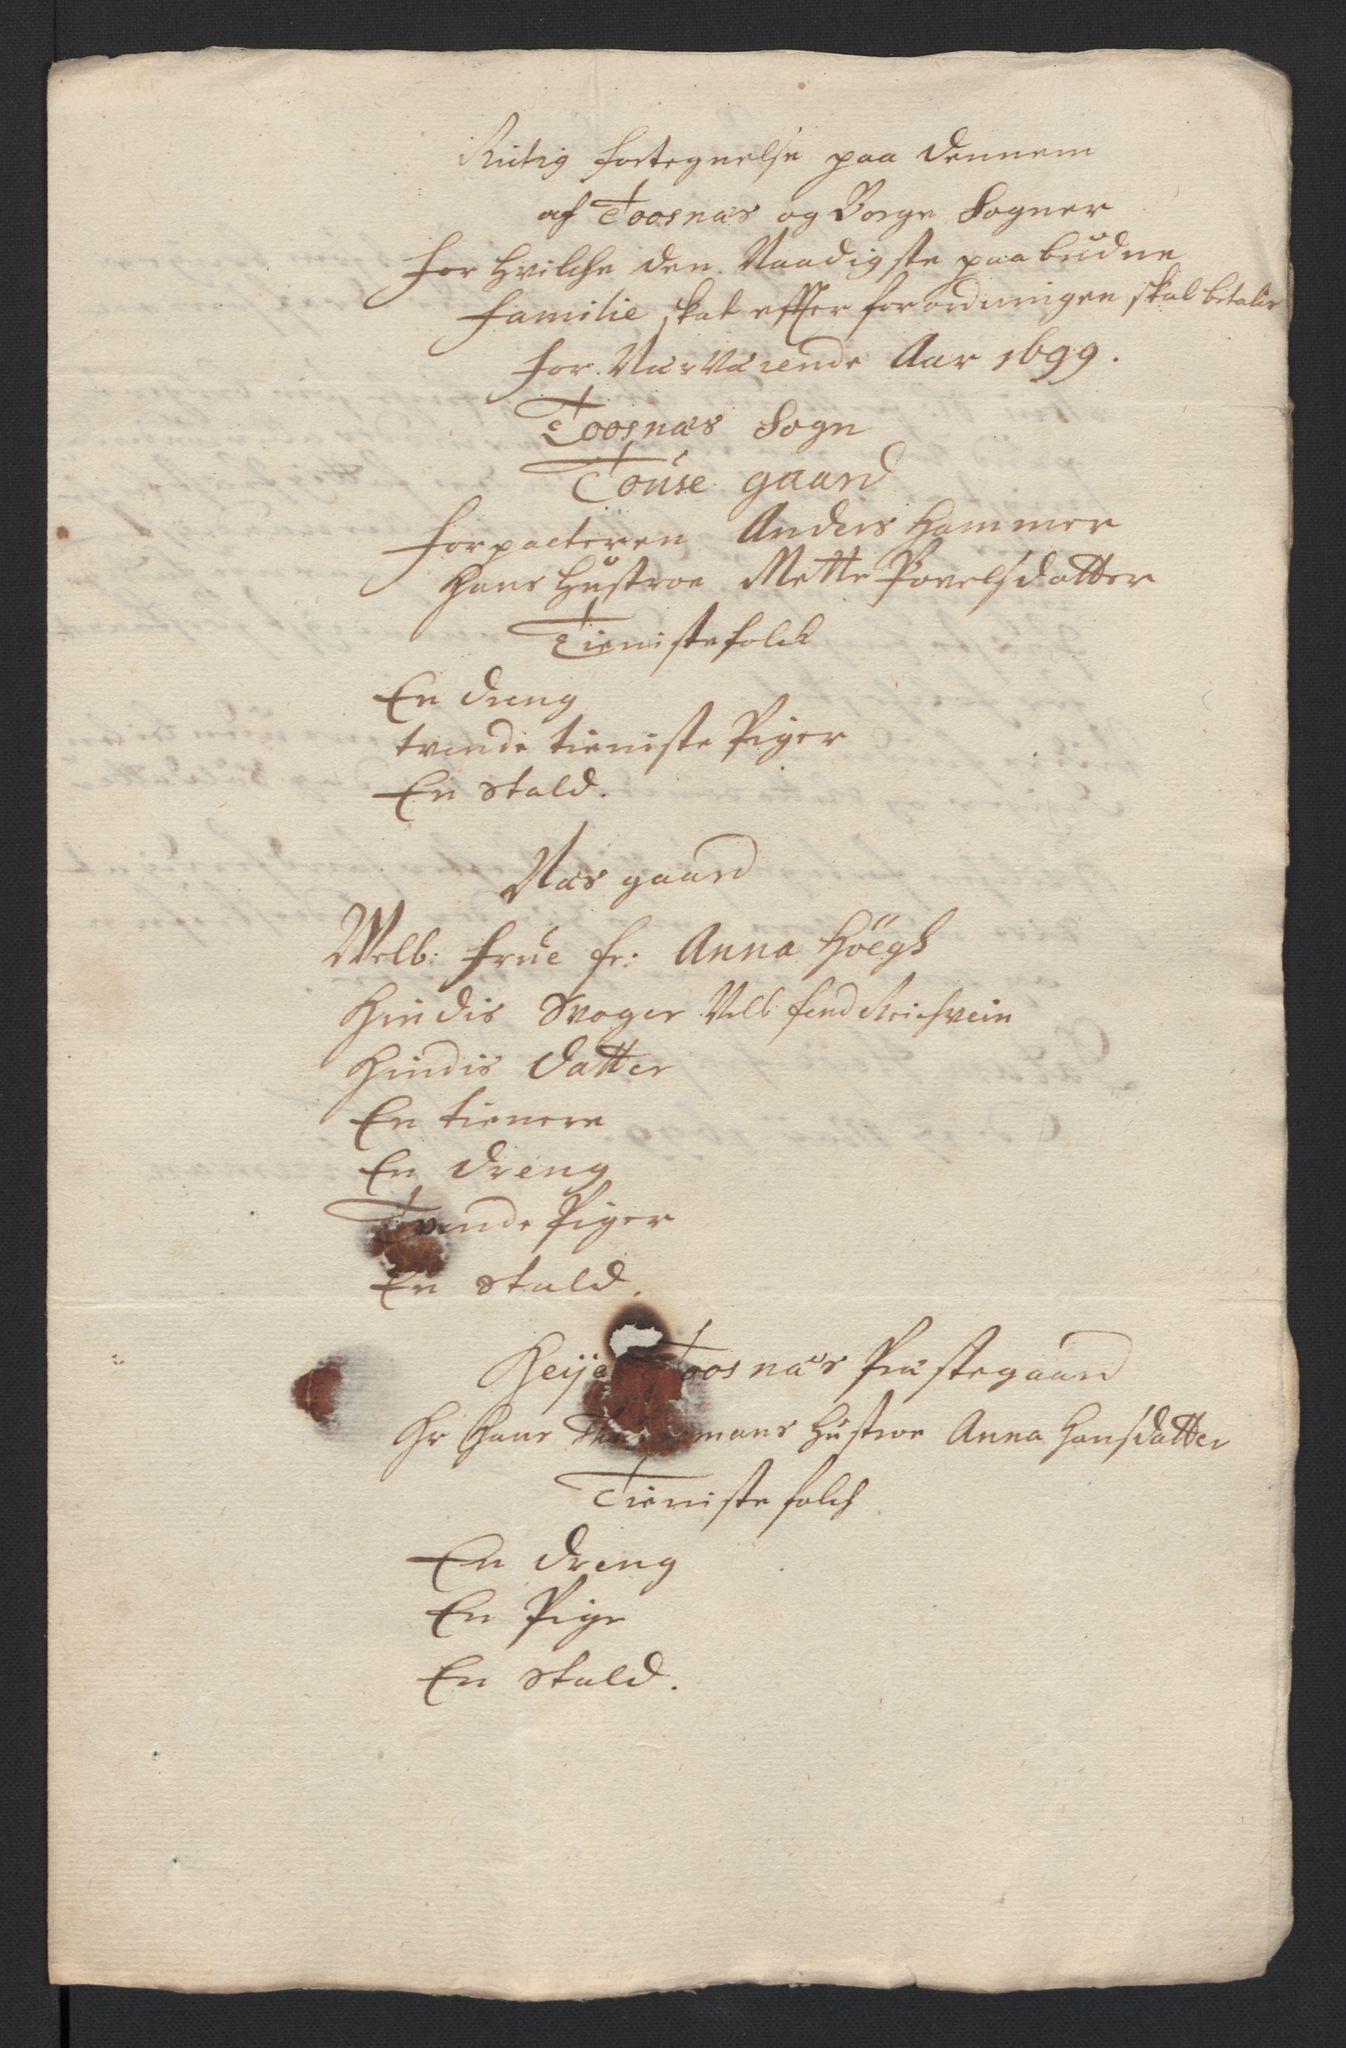 Rictig fortegnelse paa dennem
af Toosnæs og Borge Sogner
for hvilche den Naadigste paabudne
familie skat effter forordningen skal betalis
for Nærværende Aar 1699.
Toosnæs Sogn
Touse gaard
Forpacteren Anders Hammer
Hans Hustroe Mette Povelsdatter
Tieniste folck
En dreng
tvende tieniste Piger
En Stald.
Næs gaard
Welb: Frue fr: Anna Höegh
Hindis Svoger Velb Reichwein
Hindis datter
En tienere
En dreng
Tvende Piger
En Stald.
Toosnæs Præstegaard
Hr Hans Hustroe Anna Hansdatter
Tieniste folch
En dreng
En Pige
En Stald.